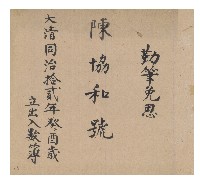 勤筆免思
陳協和號
大清同治拾貳年癸酉歲
立出入數簿